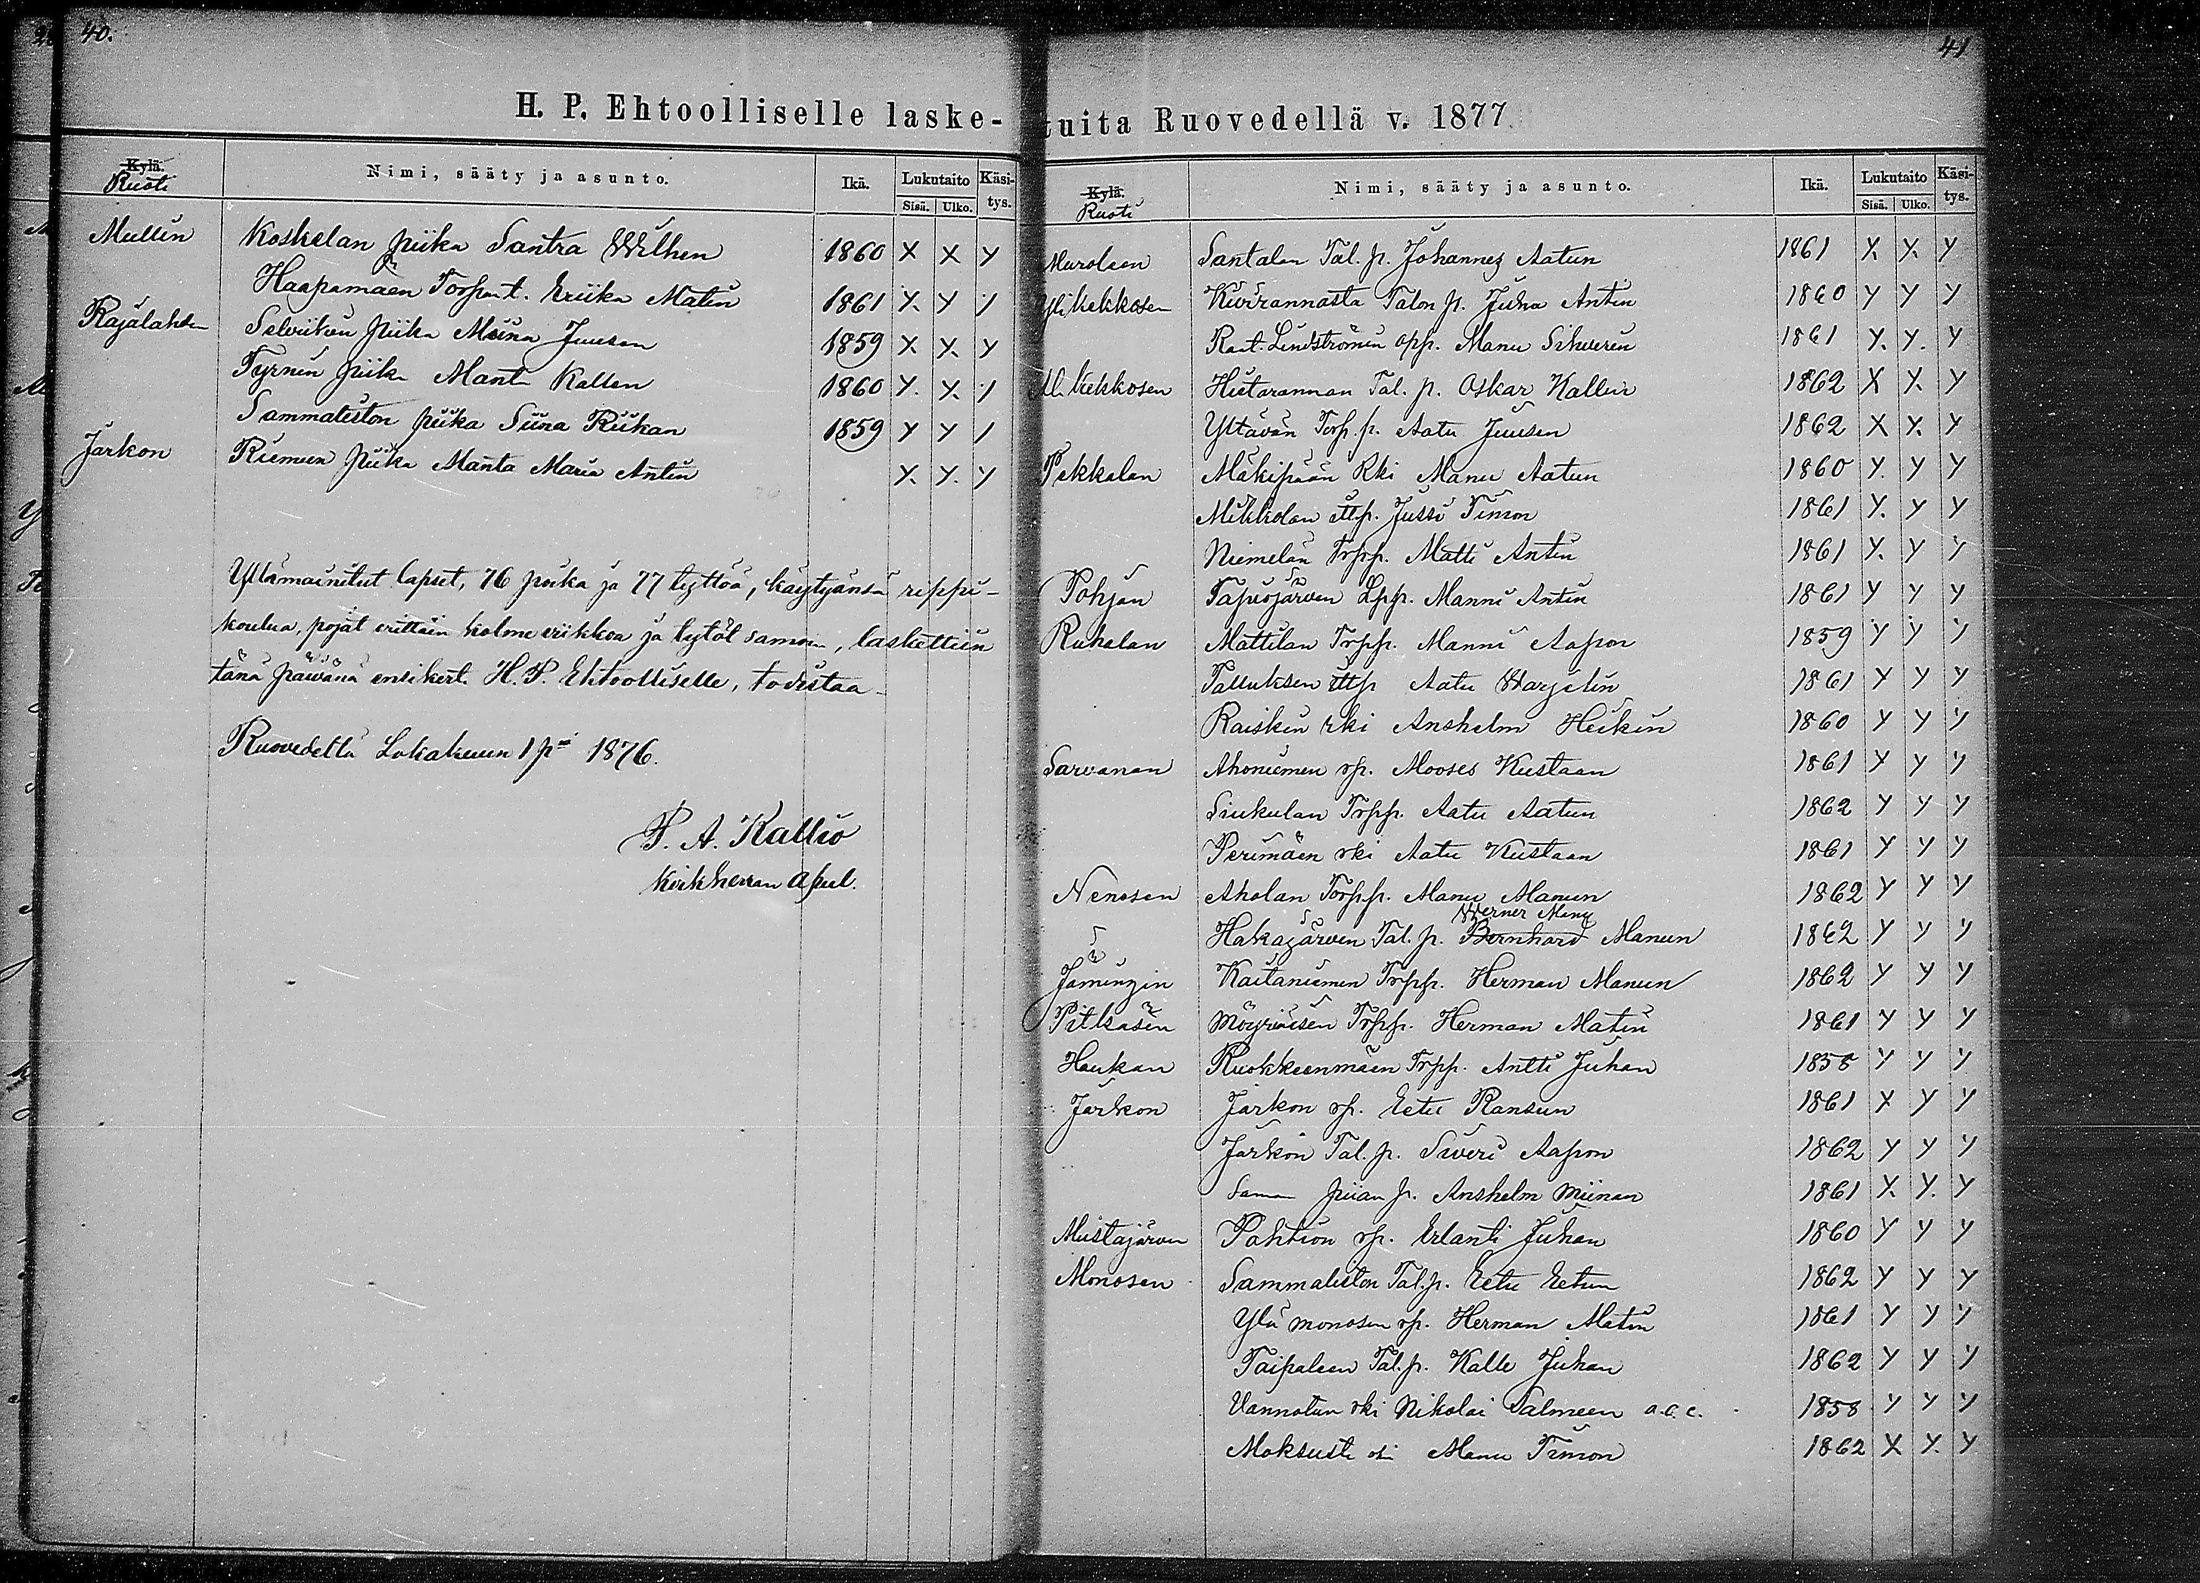 40.
H. P. Ehtoolliselle laske-
Kylä. Nimi, sääty ja asunto. Ikä. Lukutaito Käsi-
Ruoti Sisä. Ulko. tys.
Mullin Koskelan piika Santra Wilhen 1860 X X Y
Haapamäen Torpan t. Eriika Matin 1861 Y. Y Y
Rajalahden Selviikin piika Miina Juusen 1859 X Y. Y
Tyrnin piika Manta Kallen 1860 Y. Y. Y
Sammaliston piika Siina Riikan 1859 Y Y Y
Järkon Riemun piika Manta Maria Antin Y. Y. Y
Yllämainitut lapset, 76 poika ja 77 tyttöä, käytyänsä rippi-
koulua, pojat erittäin kolme viikkoa ja tytöt samoin, laskettiin
tänä päivänä ensikert. H. P. Ehtoolliselle, todistaa
Ruovedellä Lokakuun 1 p:nä 1876.
P. A. Kallio
Kirkkherran apul.
41
tuita Ruovedellä v. 1877
Kylä. Nimi, sääty ja asunto. Ikä. Lukutaito Käsi-
Ruoti Sisä. Ulko. tys.
Muroleen Santalan Tal. p. Johannes Aatun 1861 Y. Y. Y
Yli Kekkosen Kivirannasta Talon p. Juha Antin 1860 Y Y Y
Rant. Lindströmin opp. Manu Sihverin 1861 Y. Y. Y
Al. Kekkosen Hietarannan Tal. p. Oskar Kallen 1862 X Y. Y
Yltävän Torp. p. Aatu Juusen 1862 X Y. Y
Pekkalan Mäkipään Rki Manu Aatun 1860 Y. Y Y
Mikkolan itt.p. Jussi Timon 1861 Y. Y Y
Niemelän Trpp. Matti Antin 1861 Y. Y Y
Pohjan Tapiojärven Lpp. Manni Antin 1861 Y Y Y
Ruhalan Mattilan Trpp. Manni Aapon 1859 Y Y Y
Talluksen ittp Aatu Warjelin 1861 Y Y Y
Raiskin rki Anshelm Heikin 1860 Y Y Y
Sarvanan Ahoniemen rp. Mooses Kustaan 1861 Y Y Y
Siukulan Trpp. Aatu Aatun 1862 Y Y Y
Perimäen rki Aatu Kustaan 1861 Y Y Y
Nenosen Aholan Torpp. Manu Manun 1862 Y Y Y
Werner Manu
Hakajärven Tal. p. Bernhard Manun 1862 Y Y Y
Jämingin Kaitaniemen Trpp. Herman Manun 1862 Y Y Y
Pitkäsen Möyriäisen Trpp. Herman Matin 1861 Y Y Y
Haukan Ruokkeenmäen Trpp. Antti Juhan 1858 Y Y Y
Järkon Järkon rp. Eetu Ransun 1861 X Y Y
Järkön Tal. p. Siveri Aapon 1862 Y Y Y
Saman piian p. Anshelm Miinan 1861 X. Y. Y
Mustajärven Pohtion rp. Erlanti Juhan 1860 Y Y Y
Monosen Sammaliston Tal.p. Eetu Eetun 1862 Y Y Y
Ylä monosen rp. Herman Matin 1861 Y Y Y
Taipaleen Tal.p. Kalle Juhan 1862 Y Y Y
Vannotun rki Nikolai Salmeen a.c.c. 1858 Y Y Y
Manu Timon 1862 X Y. Y